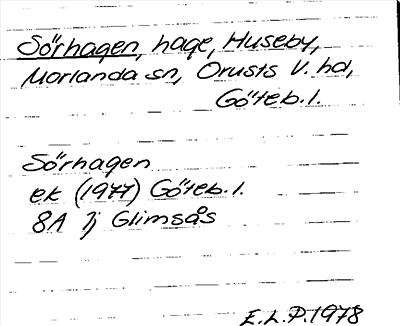 Sörhagen, hage, Huseby,
Morlanda sn, Orusts V. hd,
Göteb. l.
Sörhagen
ek (1977) Göteb. l.
8A 7j Glimsås
E.L.P. 1978